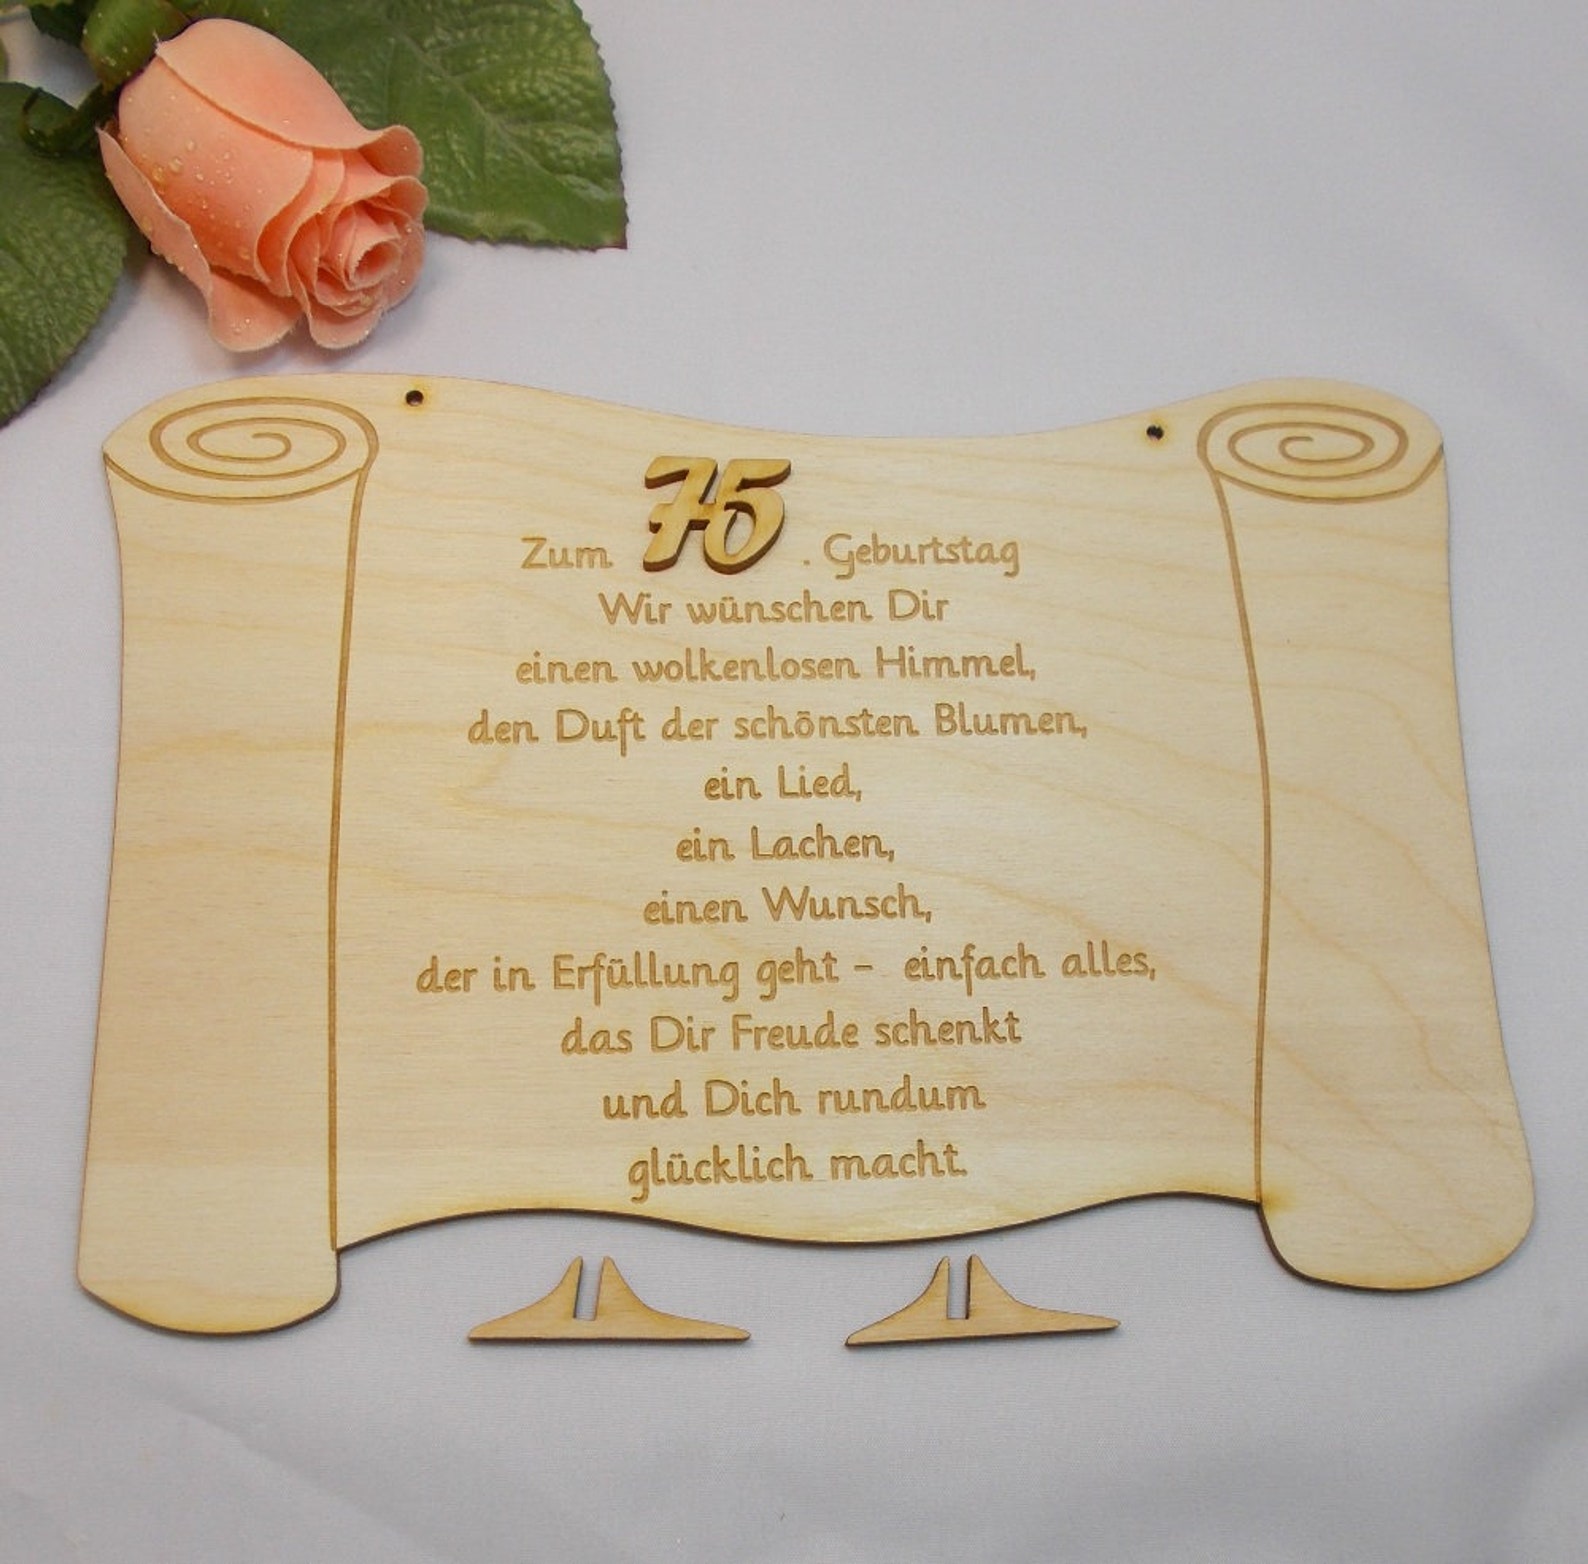 Zum 75. Geburtstag
Wir wünschen Dir
einen wolkenlosen Himmel,
den Duft der schönsten Blumen,
ein Lied,
ein Lachen,
einen Wunsch,
der in Erfüllung geht - einfach alles,
das Dir Freude schenkt
und Dich rundum
glücklich macht.